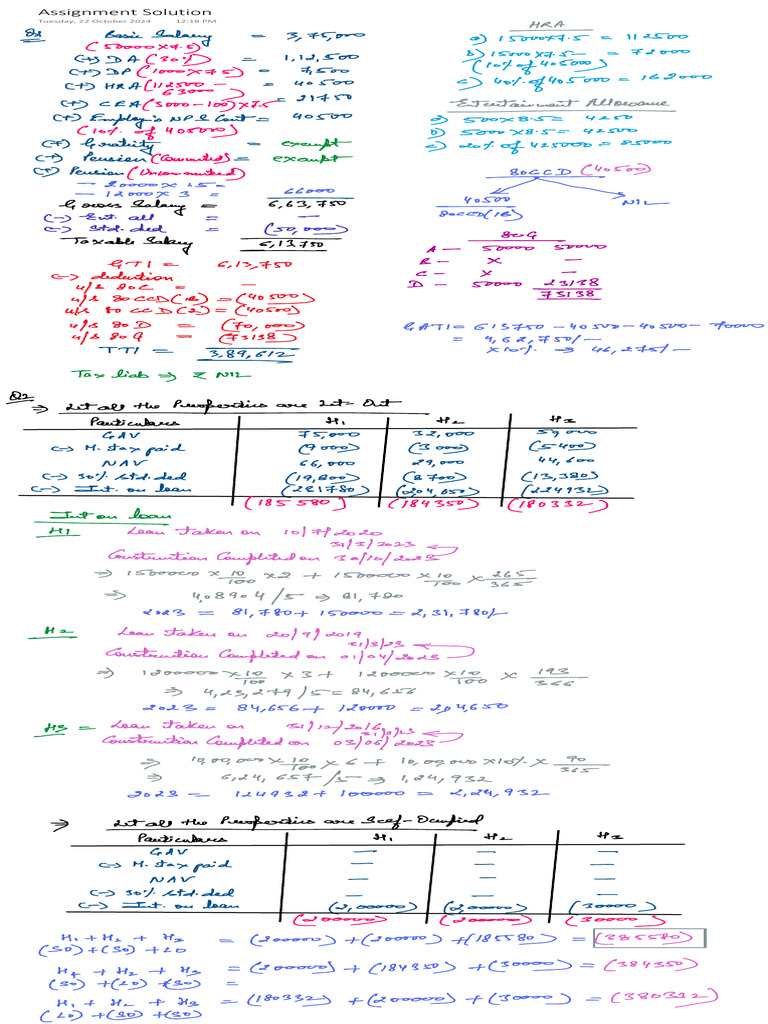 Assignment Solution
Tuesday, 22 October 2024 12:18 PM
Q1 Basic Salary = 3,75,000
(50000x7.5)
(+) DA (30%) = 1,12,500
(+) DP (1000x7.5) = 7,500
(+) HRA (112500 - 72000) = 40500
(+) CEA (3000-100)x7.5 = 21750
(+) Employer's NPS Cont = 40500
(10% of 405000)
(+) Gratuity = exempt
(+) Pension (Commuted) = exempt
(+) Pension (Uncommuted)
- 20000 x 1.5 =
- 12000 x 3 = 66000
Gross Salary = 6,63,750
(-) Ent. all = —
(-) Std. ded = (50,000)
Taxable Salary 6,13,750
GTI = 6,13,750
(-) deduction
u/s 80C = —
u/s 80CCD(1B) = (40500)
u/s 80CCD(2) = (40500)
u/s 80D = (70,000)
u/s 80G = (73138)
TTI = 3,89,612
Tax liab => ₹ NIL
HRA
a) 15000x7.5 = 112500
b) 15000x7.5 - = 72000
(10% of 405000)
c) 40% of 405000 = 162000
Entertainment Allowance
a) 500x8.5 = 4250
b) 5000x8.5 = 42500
c) 20% of 425000 = 85000
80CCD (40500)
40500 NIL
80CCD(1B)
80G
A — 50000 50000
B — X —
C — X —
D — 50000 23138
73138
GATI = 613750 - 40500 - 40500 - 70000
= 4,62,750/-
x10% => 46,275/-
Q2
=> Let all the Properties are Let-Out
Particulars H1 H2 H3
GAV 75,000 32,000 50,000
(-) M. tax paid (9000) (3000) (5400)
NAV 66,000 29,000 44,600
(-) 30% Std. ded (19,800) (8700) (13,380)
(-) Int. on loan (231780) (204,650) (224932)
(185580) (184350) (180332)
Int on loan
H1 Loan taken on 10/7/2020
31/3/2023
Construction Completed on 30/10/2023
=> 1500000 x 10/100 x 2 + 1500000 x 10/100 x 265/365
=> 4,08904/5 => 81,780
2023 = 81,780 + 150000 = 2,31,780/-
H2 Loan taken on 20/9/2019
31/3/23
Construction Completed on 01/04/2023
=> 1200000 x 10/100 x 3 + 1200000 x 10/100 x 193/366
=> 4,23,279/5 = 84,656
2023 = 84,656 + 120000 = 204,650
H3 = Loan taken on 31/12/2016
31/3/23
Construction Completed on 03/06/2023
=> 10,00,000 x 10/100 x 6 + 10,00,000 x 10% x 90/365
=> 6,24,657/5 => 1,24,932
2023 = 124932 + 100000 = 2,24,932
=> Let all the Properties are Self-Occupied
Particulars H1 H2 H3
GAV — — —
(-) M. tax paid — — —
NAV — — —
(-) 30% Std. ded — — —
(-) Int. on loan (2,00000) (200000) (30000)
(200000) (200000) (30000)
H1 + H2 + H3 = (200000) + (200000) + (185580) = (385580)
(SO) + (SO) + LO
H1 + H2 + H3 = (200000) + (184350) + (30000) = (384350)
(SO) + (LO) + (SO) =
H1 + H2 + H3 = (180332) + (200000) + (30000) = (380332)
(LO) + (SO) + (SO)